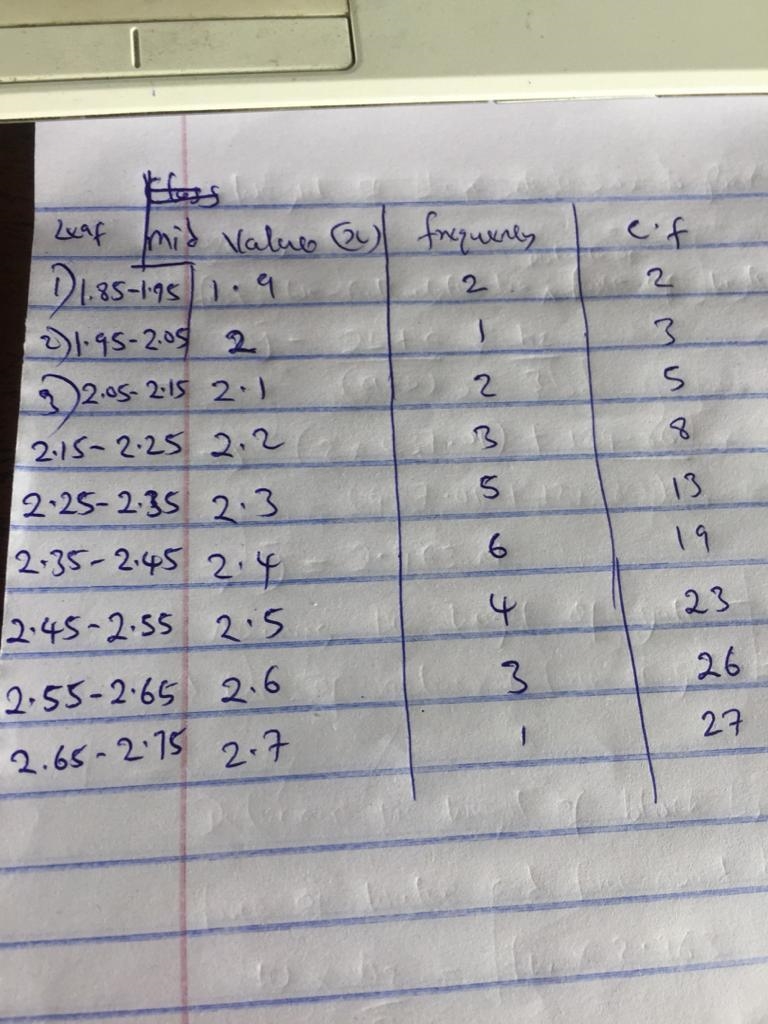 Class
Leaf mid Values (x) frequency c.f
1) 1.85-1.95 1.9 2 2
2) 1.95-2.05 2 1 3
3) 2.05-2.15 2.1 2 5
2.15-2.25 2.2 3 8
2.25-2.35 2.3 5 13
2.35-2.45 2.4 6 19
2.45-2.55 2.5 4 23
2.55-2.65 2.6 3 26
2.65-2.75 2.7 1 27